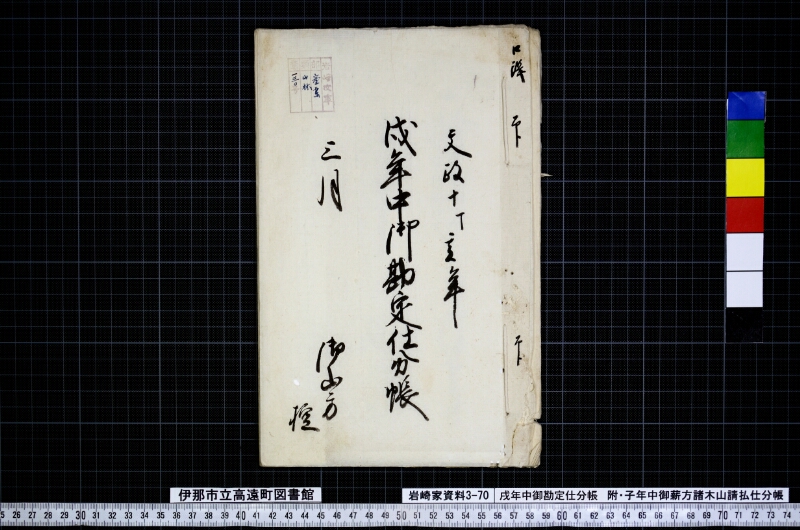 文政十丁亥年
戌年中御勘定仕分帳
三月
御山方
控
伊那市立高遠町図書館
岩崎家資料3-70
戌年中御勘定仕分帳 附・子年中御薪方諸木山請払仕分帳
5 26 27 28 29 30 31 32 33 34 35 36 37 38 39 40 41 42 43 44 45 46 47 48 49 50 51 52 53 54 55 56 57 58 59 60 61 62 63 64 65 66 67 68 69 70 71 72 73 74